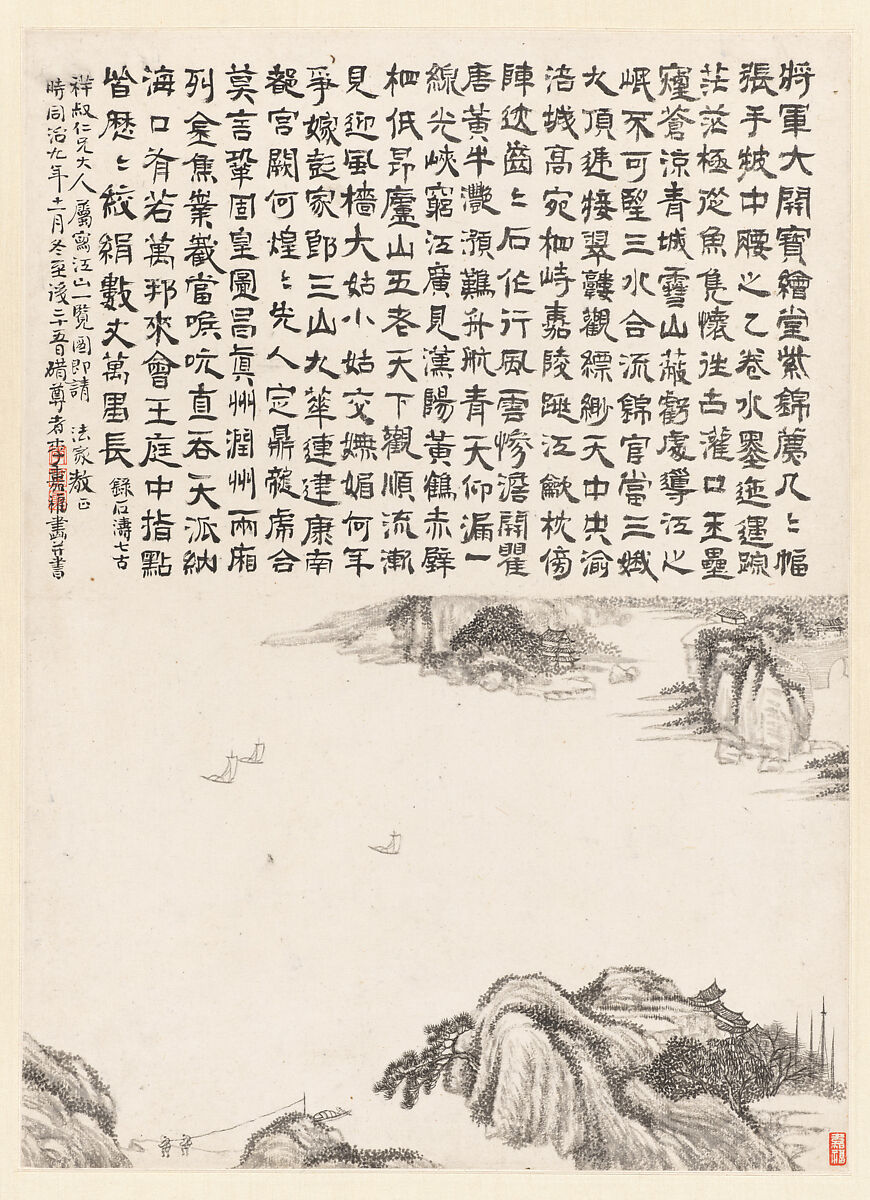 將軍大開寶繪堂紫錦薦几〻幅
張手披中腰之乙卷水墨迤邐踪
茫茫極從魚鳧懷往古灌口玉壘
瘞蒼涼青城雪山蔽虧處導江之
岷不可望三水合流錦官當三峨
大頂遞接翠觀縹緲天中央渝
涪城高宛相峙嘉陵跳江欹枕傍
陣迹齒〻石作行風雲慘澹開瞿
唐黃牛灩澦難舟航青天仰漏一
線光峽窮江廣見漢陽黃鶴赤壁
相低昂廬山五老天下觀順流漸
見迎風檣大姑小姑交嫵媚何年
爭嫁彭家郎三山九華連建康南
都宮闕何煌〻先人定鼎龍虎合
莫言鞏固皇圖昌真州潤州兩廂
列金焦業截當喉吭直吞天派納
海口有若萬邦來會王庭中指點
皆歷〻絞絹數丈萬里長 錄石濤七古
祥叔仁兄大人屬寫江山一覽圖即請 法家教正
時同治九年十一月冬至後二十五日 尊者李嘉福畫并書
嘉福